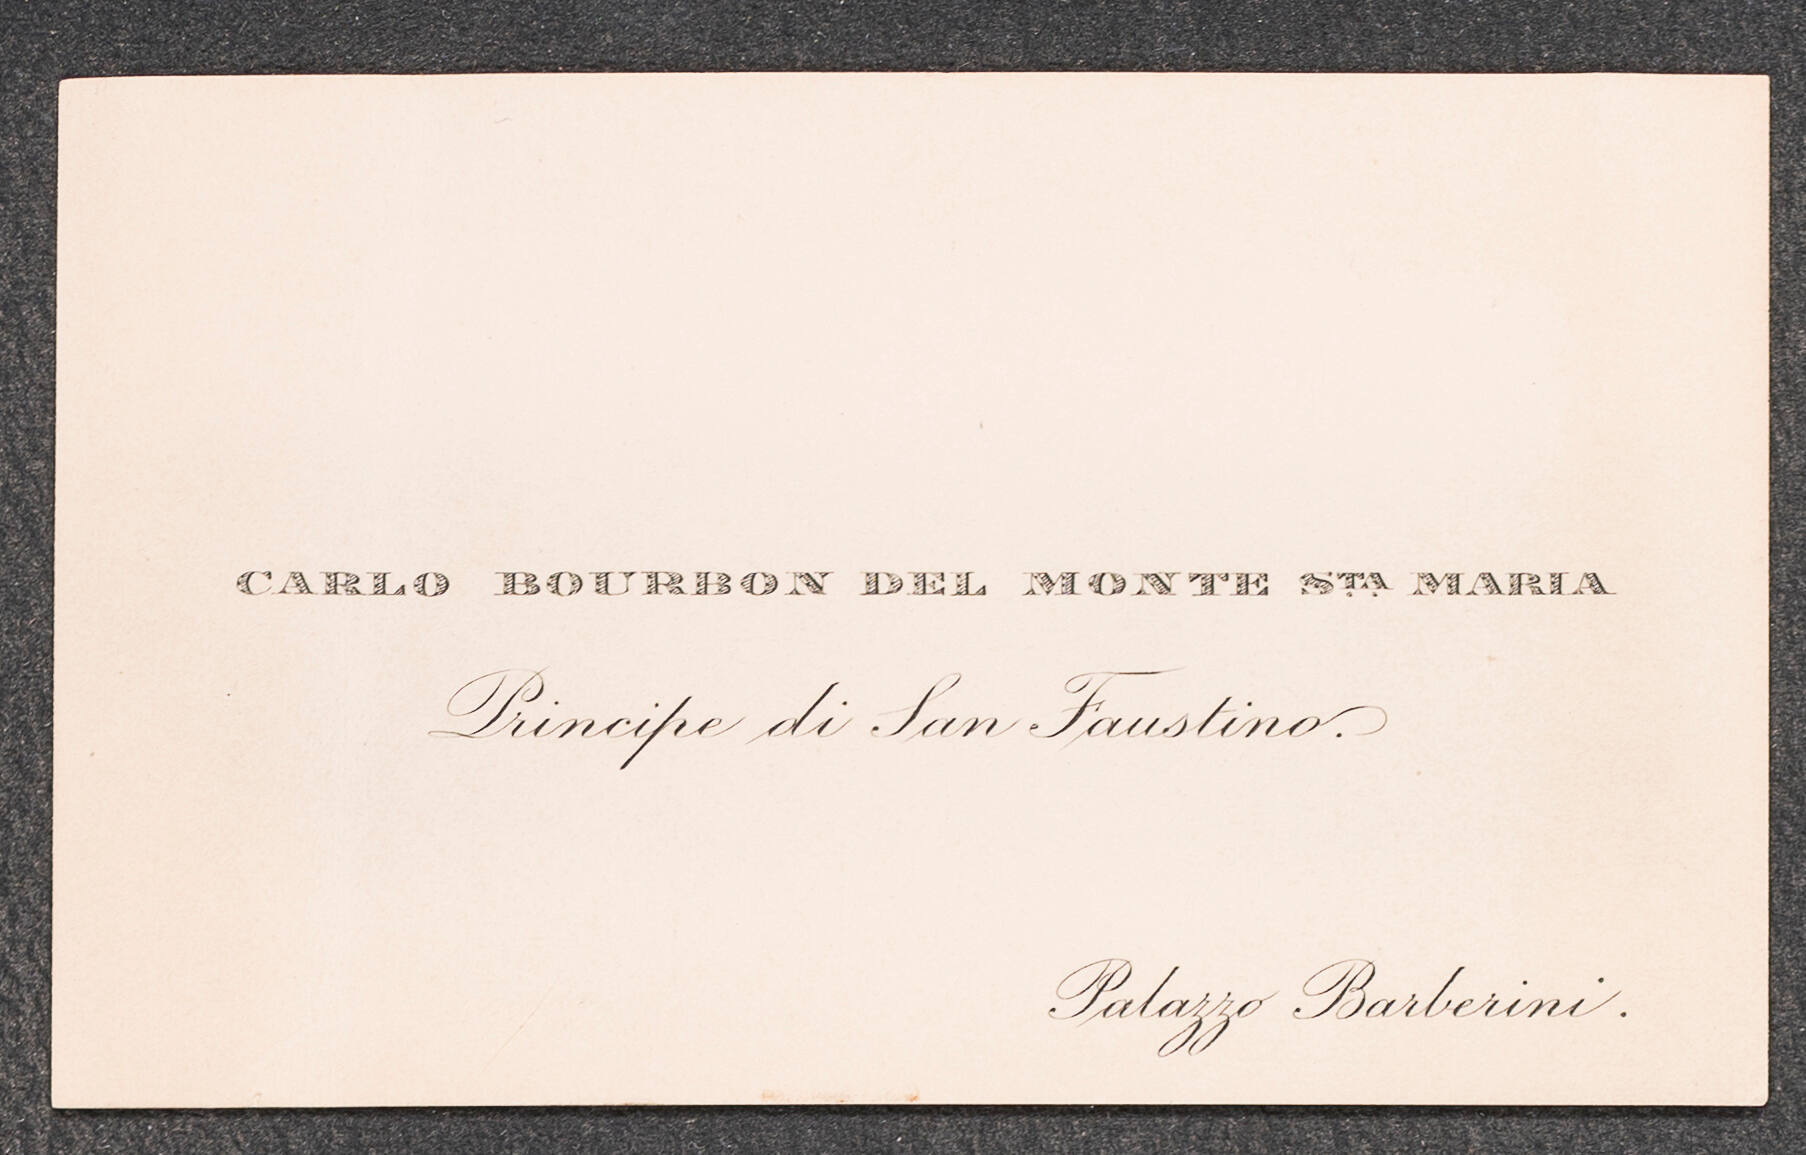 CARLO BOURBON DEL MONTE STA MARIA
Principe di San Faustino.
Palazzo Barberini.